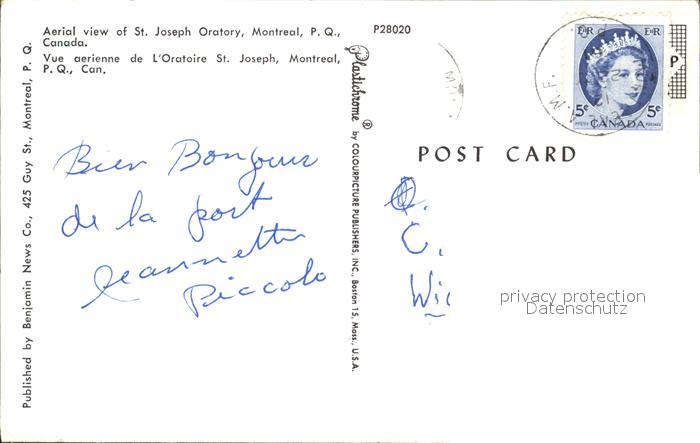 Aerial view of St. Joseph Oratory, Montreal, P. Q.,
Canada.
Vue aerienne de L'Oratoire St. Joseph, Montreal,
P. Q., Can.
P28020
Published by Benjamin News Co., 425 Guy St., Montreal, P. Q.
Plastichrome ® by COLOURPICTURE PUBLISHERS, INC., Boston 15, Mass., U.S.A.
EIIR EIIR
5¢ 5¢
POSTES CANADA POSTAGE
P
M. F.
POST CARD
Bien Bonjour
de la part
Jeannette
Piccolo
C.
Wic
privacy protection
Datenschutz